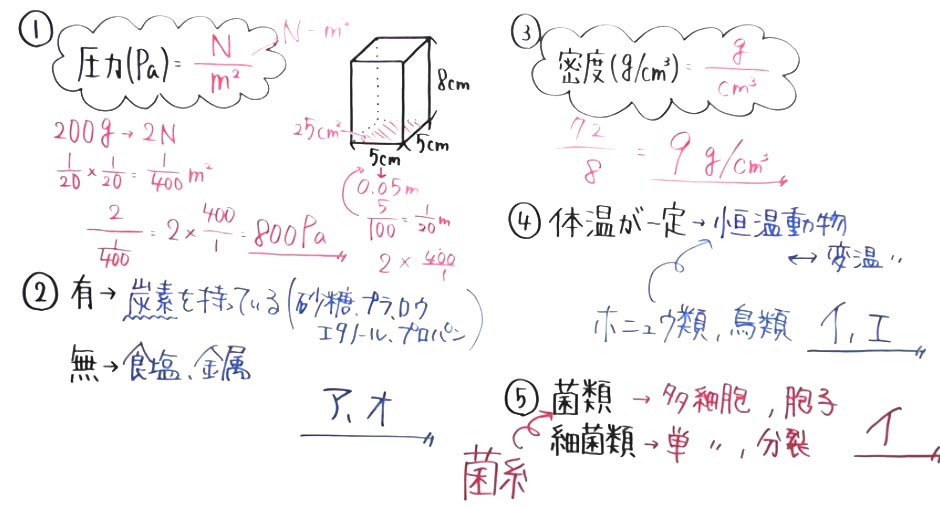 ①
圧力(Pa) = N/m²
N ÷ m²
200g → 2N
1/20 × 1/20 = 1/400 m²
2/(1/400) = 2 × 400/1 = 800Pa
8cm
25cm²
5cm
5cm
0.05m
5/100 = 1/20 m
2 × 400/1
② 有 → 炭素を持っている(砂糖、プラ、ロウ
エタノール、プロパン)
無 → 食塩、金属
ア、オ
③
密度(g/cm³) = g/cm³
72/8 = 9 g/cm³
④ 体温が一定 → 恒温動物
↔ 変温〃
ホニュウ類、鳥類 イ、エ
⑤ 菌類 → 多細胞、胞子
細菌類 → 単〃、分裂
イ
菌糸